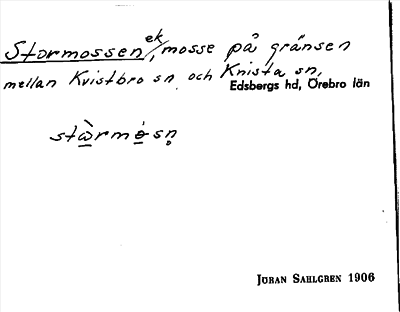 Stormossen ek/, mosse på gränsen
mellan Kvistbro sn. och Knista sn,
Edsbergs hd, Örebro län
stὼ̲rmò̲sn̥
JÖRAN SAHLGREN 1906